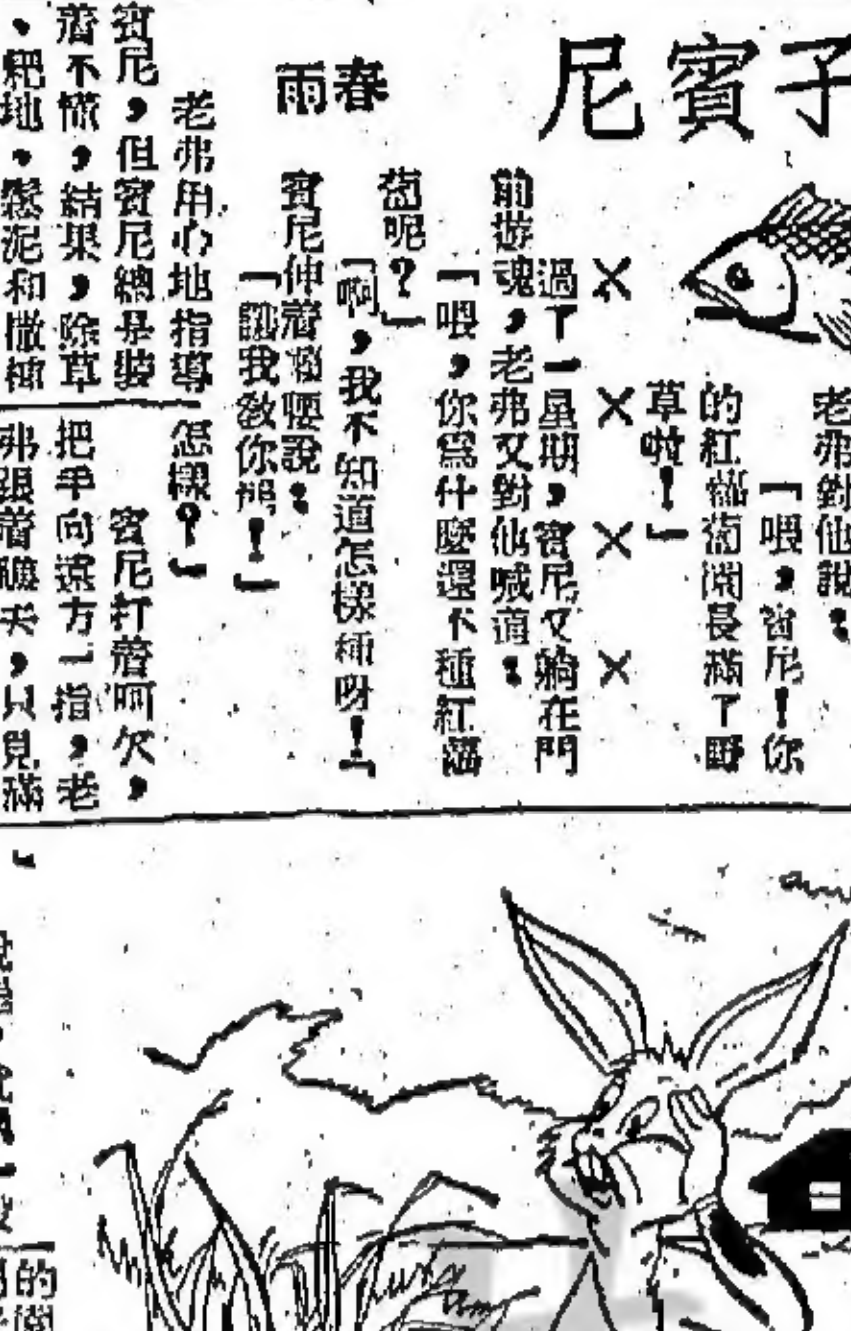 子賓尼
春雨
老弗對他說：
「喂，賓尼！你
的紅蘿蔔園長滿了野
草啦！」
××××
過了一星期，賓尼又躺在門
前遊魂，老弗又對他喊道：
「喂，你為什麼還不種紅蘿
蔔呢？」
「啊，我不知道怎樣種呀！」
賓尼伸着懶腰說：
「讓我教你吧！」
老弗用心地指導
賓尼，但賓尼總是裝
着不懂，結果，除草
、耙地、鬆泥和撒種
怎樣？」
賓尼打着呵欠，
把手向遠方一指，老
弗跟着望去，只見滿
的園